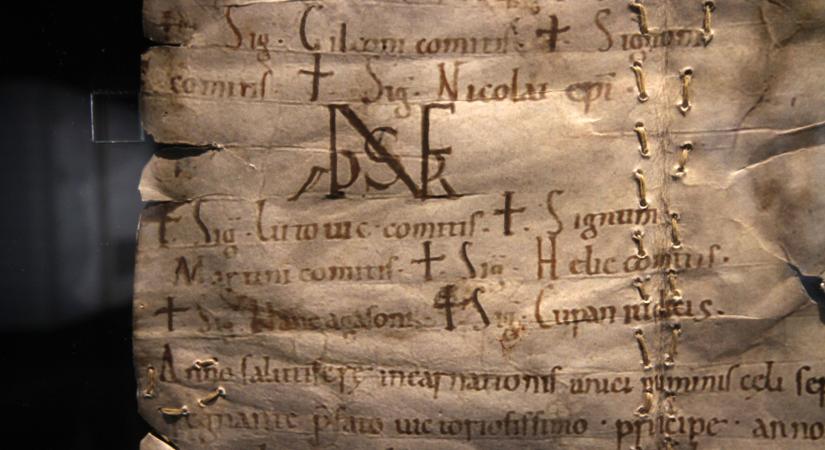 Sig. Cileoni comitis. ✝ Signum
comitis ✝ Sig. Nicolai epi.
✝ Sig. Lutouic comitis. ✝ Signum
Martini comitis. ✝ Sig. Helie comitis.
✝ Sig. agasonis. ✝ Sig. Cupan
Anno salutifere incarnationis unici numinis celi sep
regnante p̄fato uictoriosissimo · principe · anno